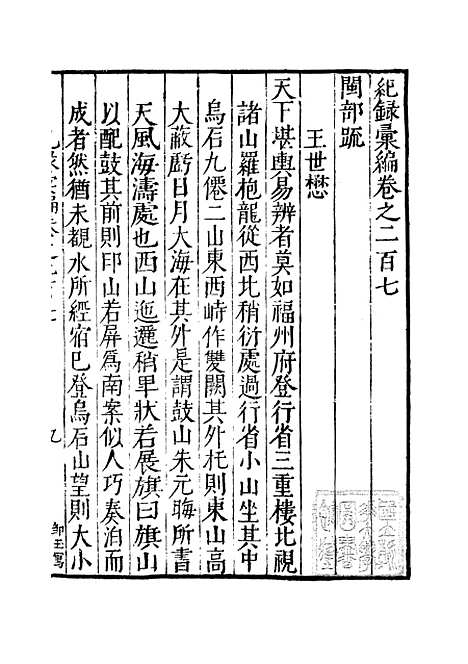 紀録彙編卷之二百七
閩部䟽
王世懋
天下堪輿易辨者莫如福州府登行省三重樓北視
諸山羅抱龍從西北稍衍處過行省小山坐其中
烏石九僊二山東西峙作雙闕其外托則東山高
大蔽虧日月大海在其外是謂鼓山朱元晦所書
天風海濤處也西山迤邐稍卑狀若展旗曰旗山
以配鼓其前則印山若屏爲南案似人巧奏泊而
成者然猶未觀水所經宿巳登烏石山望則大小
鄒玉寫